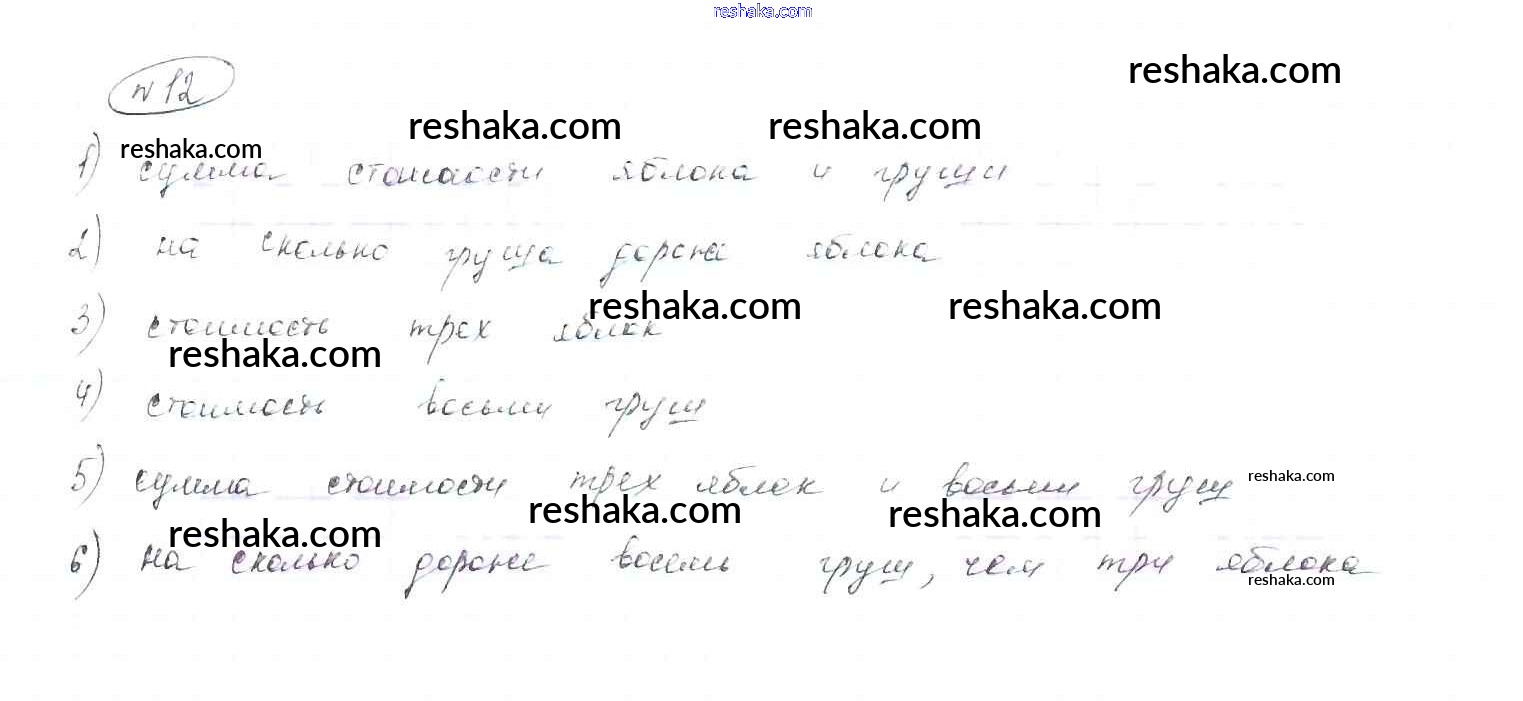 reshaka.com
reshaka.com
№ 12
reshaka.com reshaka.com
reshaka.com
1) сумма стоимости яблока и груши
2) на сколько груша дороже яблока
reshaka.com reshaka.com
3) стоимость трех яблок
reshaka.com
4) стоимость восьми груш
reshaka.com
5) сумма стоимости трех яблок и восьми груш
reshaka.com reshaka.com
reshaka.com
6) на сколько дороже восемь груш, чем три яблока
reshaka.com